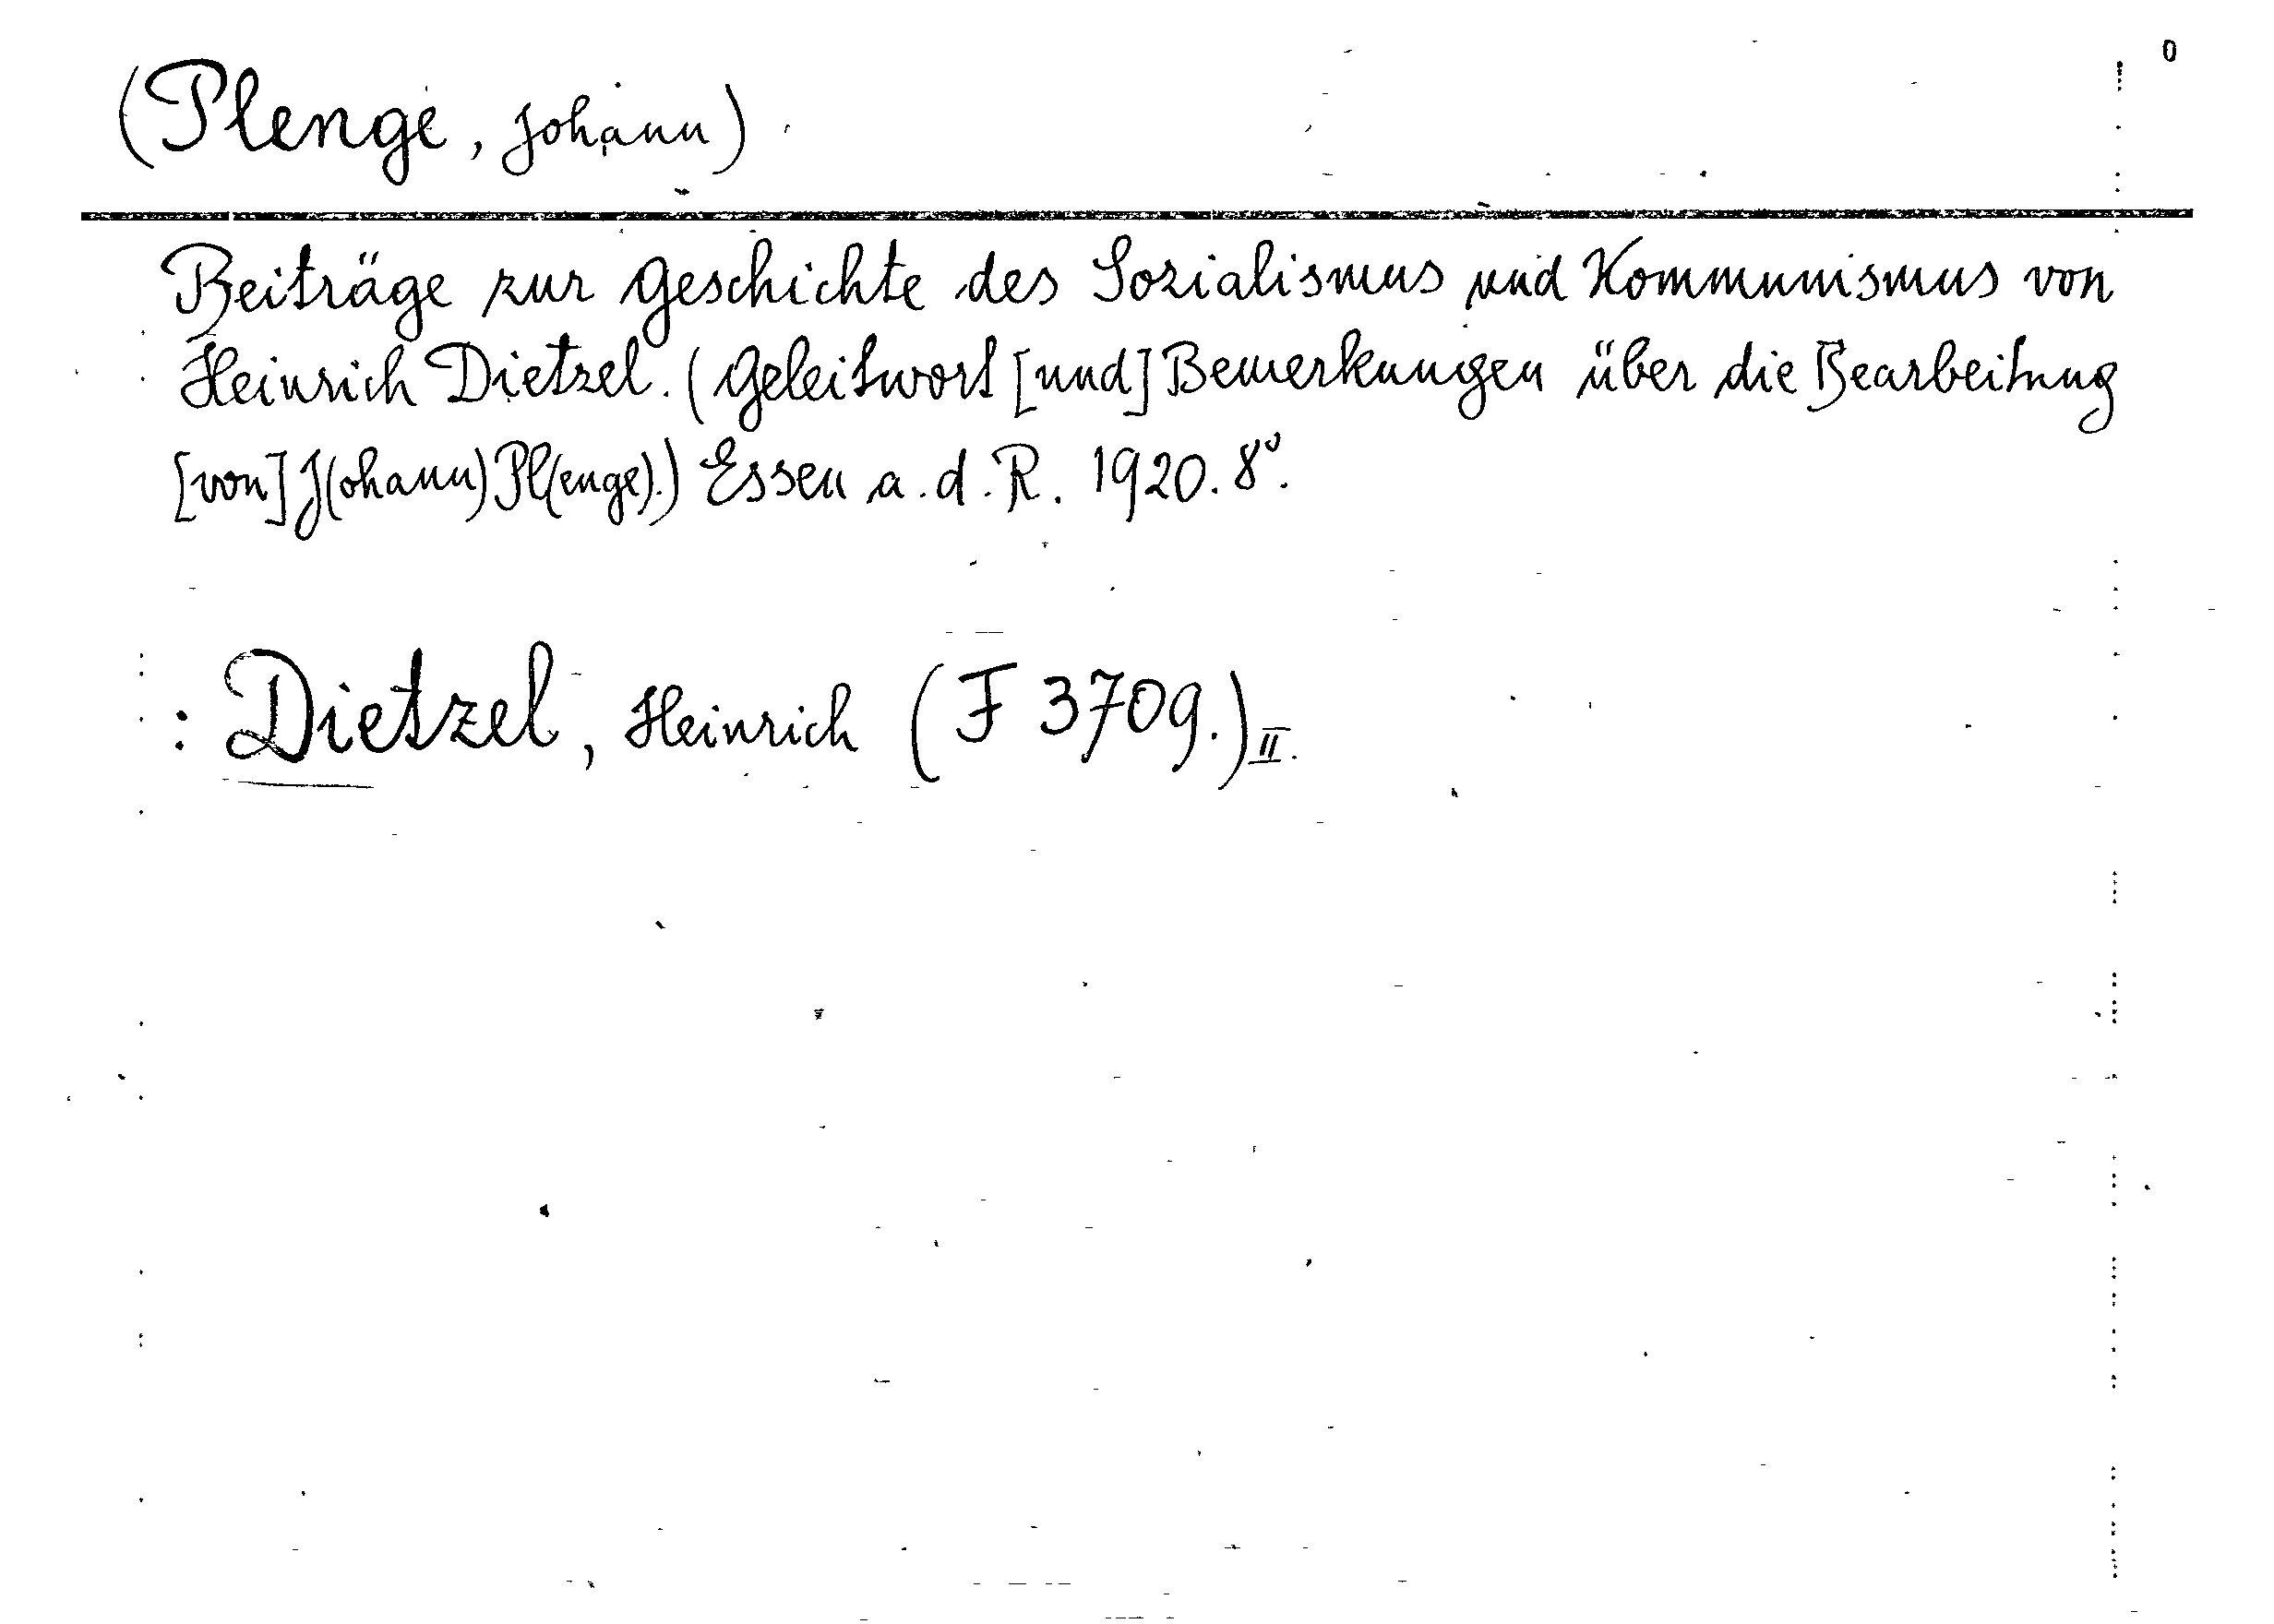 0
(Plenge, Johann)
Beiträge zur Geschichte des Sozialismus und Kommunismus von
Heinrich Dietzel. (Geleitwort [und] Bemerkungen über die Bearbeitung
[von] J(ohann) Pl(enge).) Essen a. d. R. 1920. 8°.
: Dietzel, Heinrich (F 3709.) II.